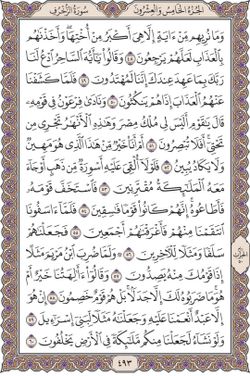 الجُزْءُ الخَامِسُ وَالعِشْرُونَ
سُورَةُ الزُّخْرُفِ
وَمَا نُرِيهِم مِّنْ ءَايَةٍ إِلَّا هِىَ أَكْبَرُ مِنْ أُخْتِهَا ۖ وَأَخَذْنَٰهُم
بِٱلْعَذَابِ لَعَلَّهُمْ يَرْجِعُونَ ٤٨ وَقَالُوا۟ يَٰٓأَيُّهَ ٱلسَّاحِرُ ٱدْعُ لَنَا
رَبَّكَ بِمَا عَهِدَ عِندَكَ إِنَّنَا لَمُهْتَدُونَ ٤٩ فَلَمَّا كَشَفْنَا
عَنْهُمُ ٱلْعَذَابَ إِذَا هُمْ يَنكُثُونَ ٥٠ وَنَادَىٰ فِرْعَوْنُ فِى قَوْمِهِۦ
قَالَ يَٰقَوْمِ أَلَيْسَ لِى مُلْكُ مِصْرَ وَهَٰذِهِ ٱلْأَنْهَٰرُ تَجْرِى مِن
تَحْتِىٓ ۖ أَفَلَا تُبْصِرُونَ ٥١ أَمْ أَنَا۠ خَيْرٌ مِّنْ هَٰذَا ٱلَّذِى هُوَ مَهِينٌ
وَلَا يَكَادُ يُبِينُ ٥٢ فَلَوْلَآ أُلْقِىَ عَلَيْهِ أَسْوِرَةٌ مِّن ذَهَبٍ أَوْ جَآءَ
مَعَهُ ٱلْمَلَٰٓئِكَةُ مُقْتَرِنِينَ ٥٣ فَٱسْتَخَفَّ قَوْمَهُۥ
فَأَطَاعُوهُ ۚ إِنَّهُمْ كَانُوا۟ قَوْمًا فَٰسِقِينَ ٥٤ فَلَمَّآ ءَاسَفُونَا
ٱنتَقَمْنَا مِنْهُمْ فَأَغْرَقْنَٰهُمْ أَجْمَعِينَ ٥٥ فَجَعَلْنَٰهُمْ
سَلَفًا وَمَثَلًا لِّلْءَاخِرِينَ ٥٦ وَلَمَّا ضُرِبَ ٱبْنُ مَرْيَمَ مَثَلًا
إِذَا قَوْمُكَ مِنْهُ يَصِدُّونَ ٥٧ وَقَالُوٓا۟ ءَأَٰلِهَتُنَا خَيْرٌ أَمْ
هُوَ ۚ مَا ضَرَبُوهُ لَكَ إِلَّا جَدَلًۢا ۚ بَلْ هُمْ قَوْمٌ خَصِمُونَ ٥٨ إِنْ هُوَ
إِلَّا عَبْدٌ أَنْعَمْنَا عَلَيْهِ وَجَعَلْنَٰهُ مَثَلًا لِّبَنِىٓ إِسْرَٰٓءِيلَ ٥٩
وَلَوْ نَشَآءُ لَجَعَلْنَا مِنكُم مَّلَٰٓئِكَةً فِى ٱلْأَرْضِ يَخْلُفُونَ ٦٠
٤٩٣